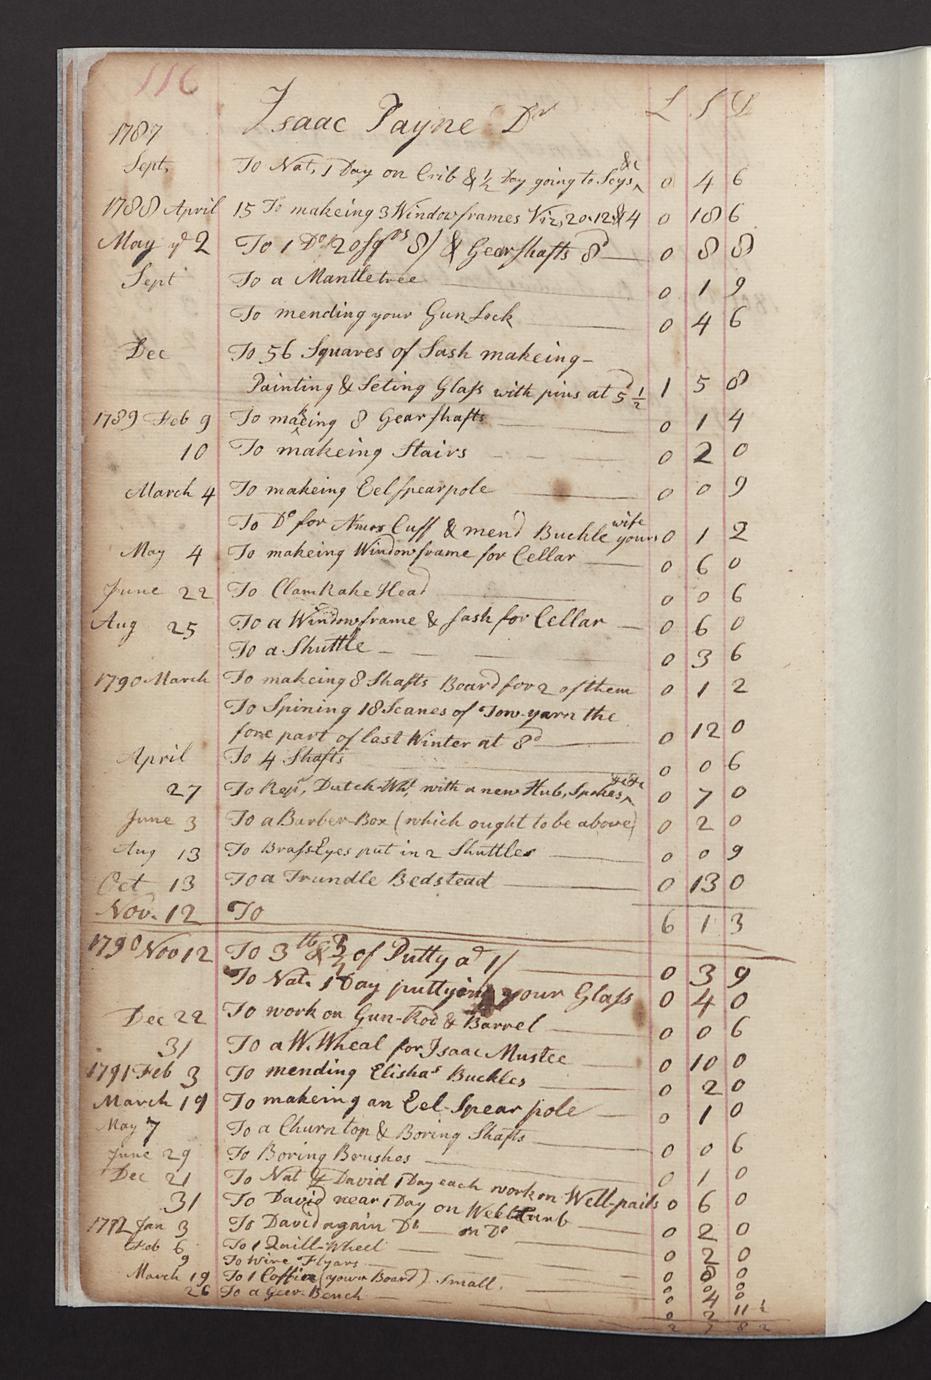 116
Isaac Payne Dr £ S D
1787
Sept. To Nat, 1 Day on Crib & ½ Day going to &c 0 4 6
1788 April 15 To makeing 3 Windowframes Viz, 20. 12. & 4 0 18 6
May ye 2 To 1 Do 20 sqrs 8/ & Gearshafts 8d 0 8 8
Sept To a Mantletree 0 1 9
To mending your Gun Lock 0 4 6
Dec To 56 Squares of Sash makeing-
Painting & Seting Glass with pins at 5½ 1 5 8
1789 Feb 9 To making 8 Gearshafts 0 1 4
10 To makeing Stairs 0 2 0
March 4 To makeing Eelspearpole 0 0 9
To Do for Amos Cuff & mend Buckle your wife 0 1 2
May 4 To makeing Windowframe for Cellar 0 6 0
June 22 To Clam Rake Head 0 0 6
Aug 25 To a Windowframe & sash for Cellar 0 6 0
To a Shuttle 0 3 6
1790 March To makeing 8 Shafts Board for 2 of them 0 1 2
To Spining 18 Scanes of Tow-yarn the
fore part of last Winter at 8d 0 12 0
April To 4 Shafts 0 0 6
27 To Repr, Dutch-Whl, with a new Hub, Spokes &c &c 0 7 0
June 3 To a Barber-Box (which ought to be above) 0 2 0
Aug 13 To Brass Eyes put in 2 Shuttles 0 0 9
Oct 13 To a Trundle Bedstead 0 13 0
Nov. 12 To 6 1 3
1790 Nov 12 To 3 lb & ¾ of Putty ad 1/ 0 3 9
To Nat. 1 Day puttying your Glass 0 4 0
Dec 22 To work on Gun-Rod & Barrel 0 0 6
31 To a W. Wheal for Isaac Mustee 0 10 0
1791 Feb 3 To mending Elishas Buckles 0 2 0
March 19 To makeing an Eel-Spear pole 0 1 0
May 7 To a Churn top & Boring Shafts 0 0 6
June 29 To Boring Brushes 0 1 0
Dec 21 To Nat & David 1 Day each work on Well-pails 0 6 0
31 To David near 1 Day on Well Curb 0 2 0
1792 Jan 3 To David again Do on Do 0 2 0
Feb 6 To 1 Quill-Wheel 0 0
9 To Wire Flyars 0 0
March 19 To 1 Coffin (your Board) small. 0 4 0
26 To a Bench 0 2 11½